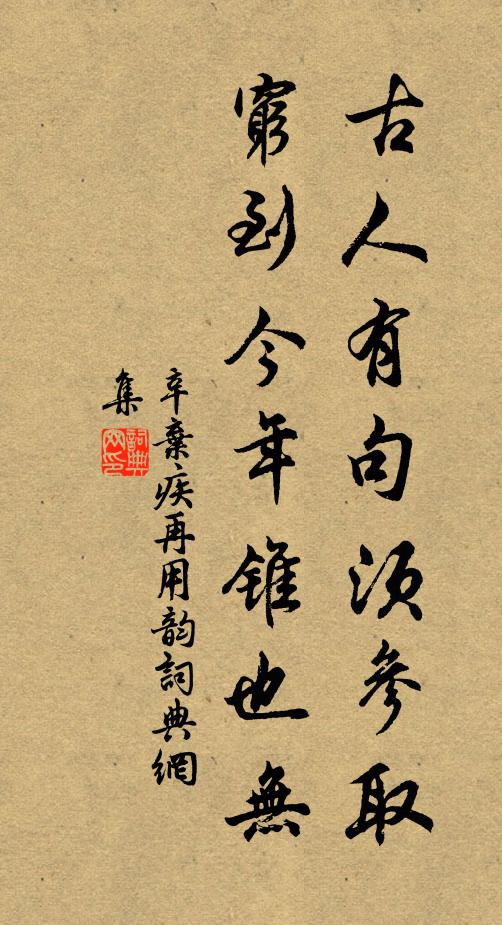 古人有句須參取
窮到今年錐也無
辛棄疾再用韵詞典網
集
詞典網印